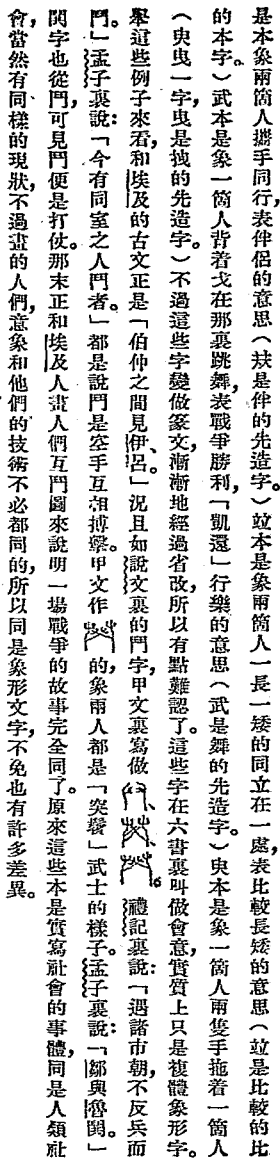 是本象兩箇人攜手同行，表伴侶的意思（㚘是伴的先造字。）竝本是象兩箇人一長一矮的同立在一處，表比較長矮的意思（竝是比較的比
的本字。）武本是象一箇人背着戈在那裏跳舞，表戰爭勝利，「凱還」行樂的意思（武是舞的先造字。）㬰本是象一箇人兩隻手拖着一箇人
（㬰曳一字，曳是拽的先造字。）不過這些字變做篆文，漸漸地經過省改，所以有點難認了。這些字在六書裏叫做會意，實質上只是複體象形字。
舉這些例子來看，和埃及的古文正是「伯仲之間見伊、呂。」況且如說文裏的鬥字，甲文裏寫做。禮記裏說：「遇諸市朝，不反兵而
鬥。」孟子裏說：「今有同室之人鬥者。」都是說鬥是空手互相搏擊。甲文作的，象兩人都是「突鬢」武士的樣子。孟子裏說：「鄒與魯鬨。」
鬨字也從鬥，可見鬥便是打仗。那末正和埃及人畫人們互鬥圖來說明一場戰爭的故事完全同了。原來這些本是實寫社會的事體，同是人類社
會，當然有同樣的現狀，不過畫的人們，意象和他們的技術不必都同的，所以同是象形文字，不免也有許多差異。